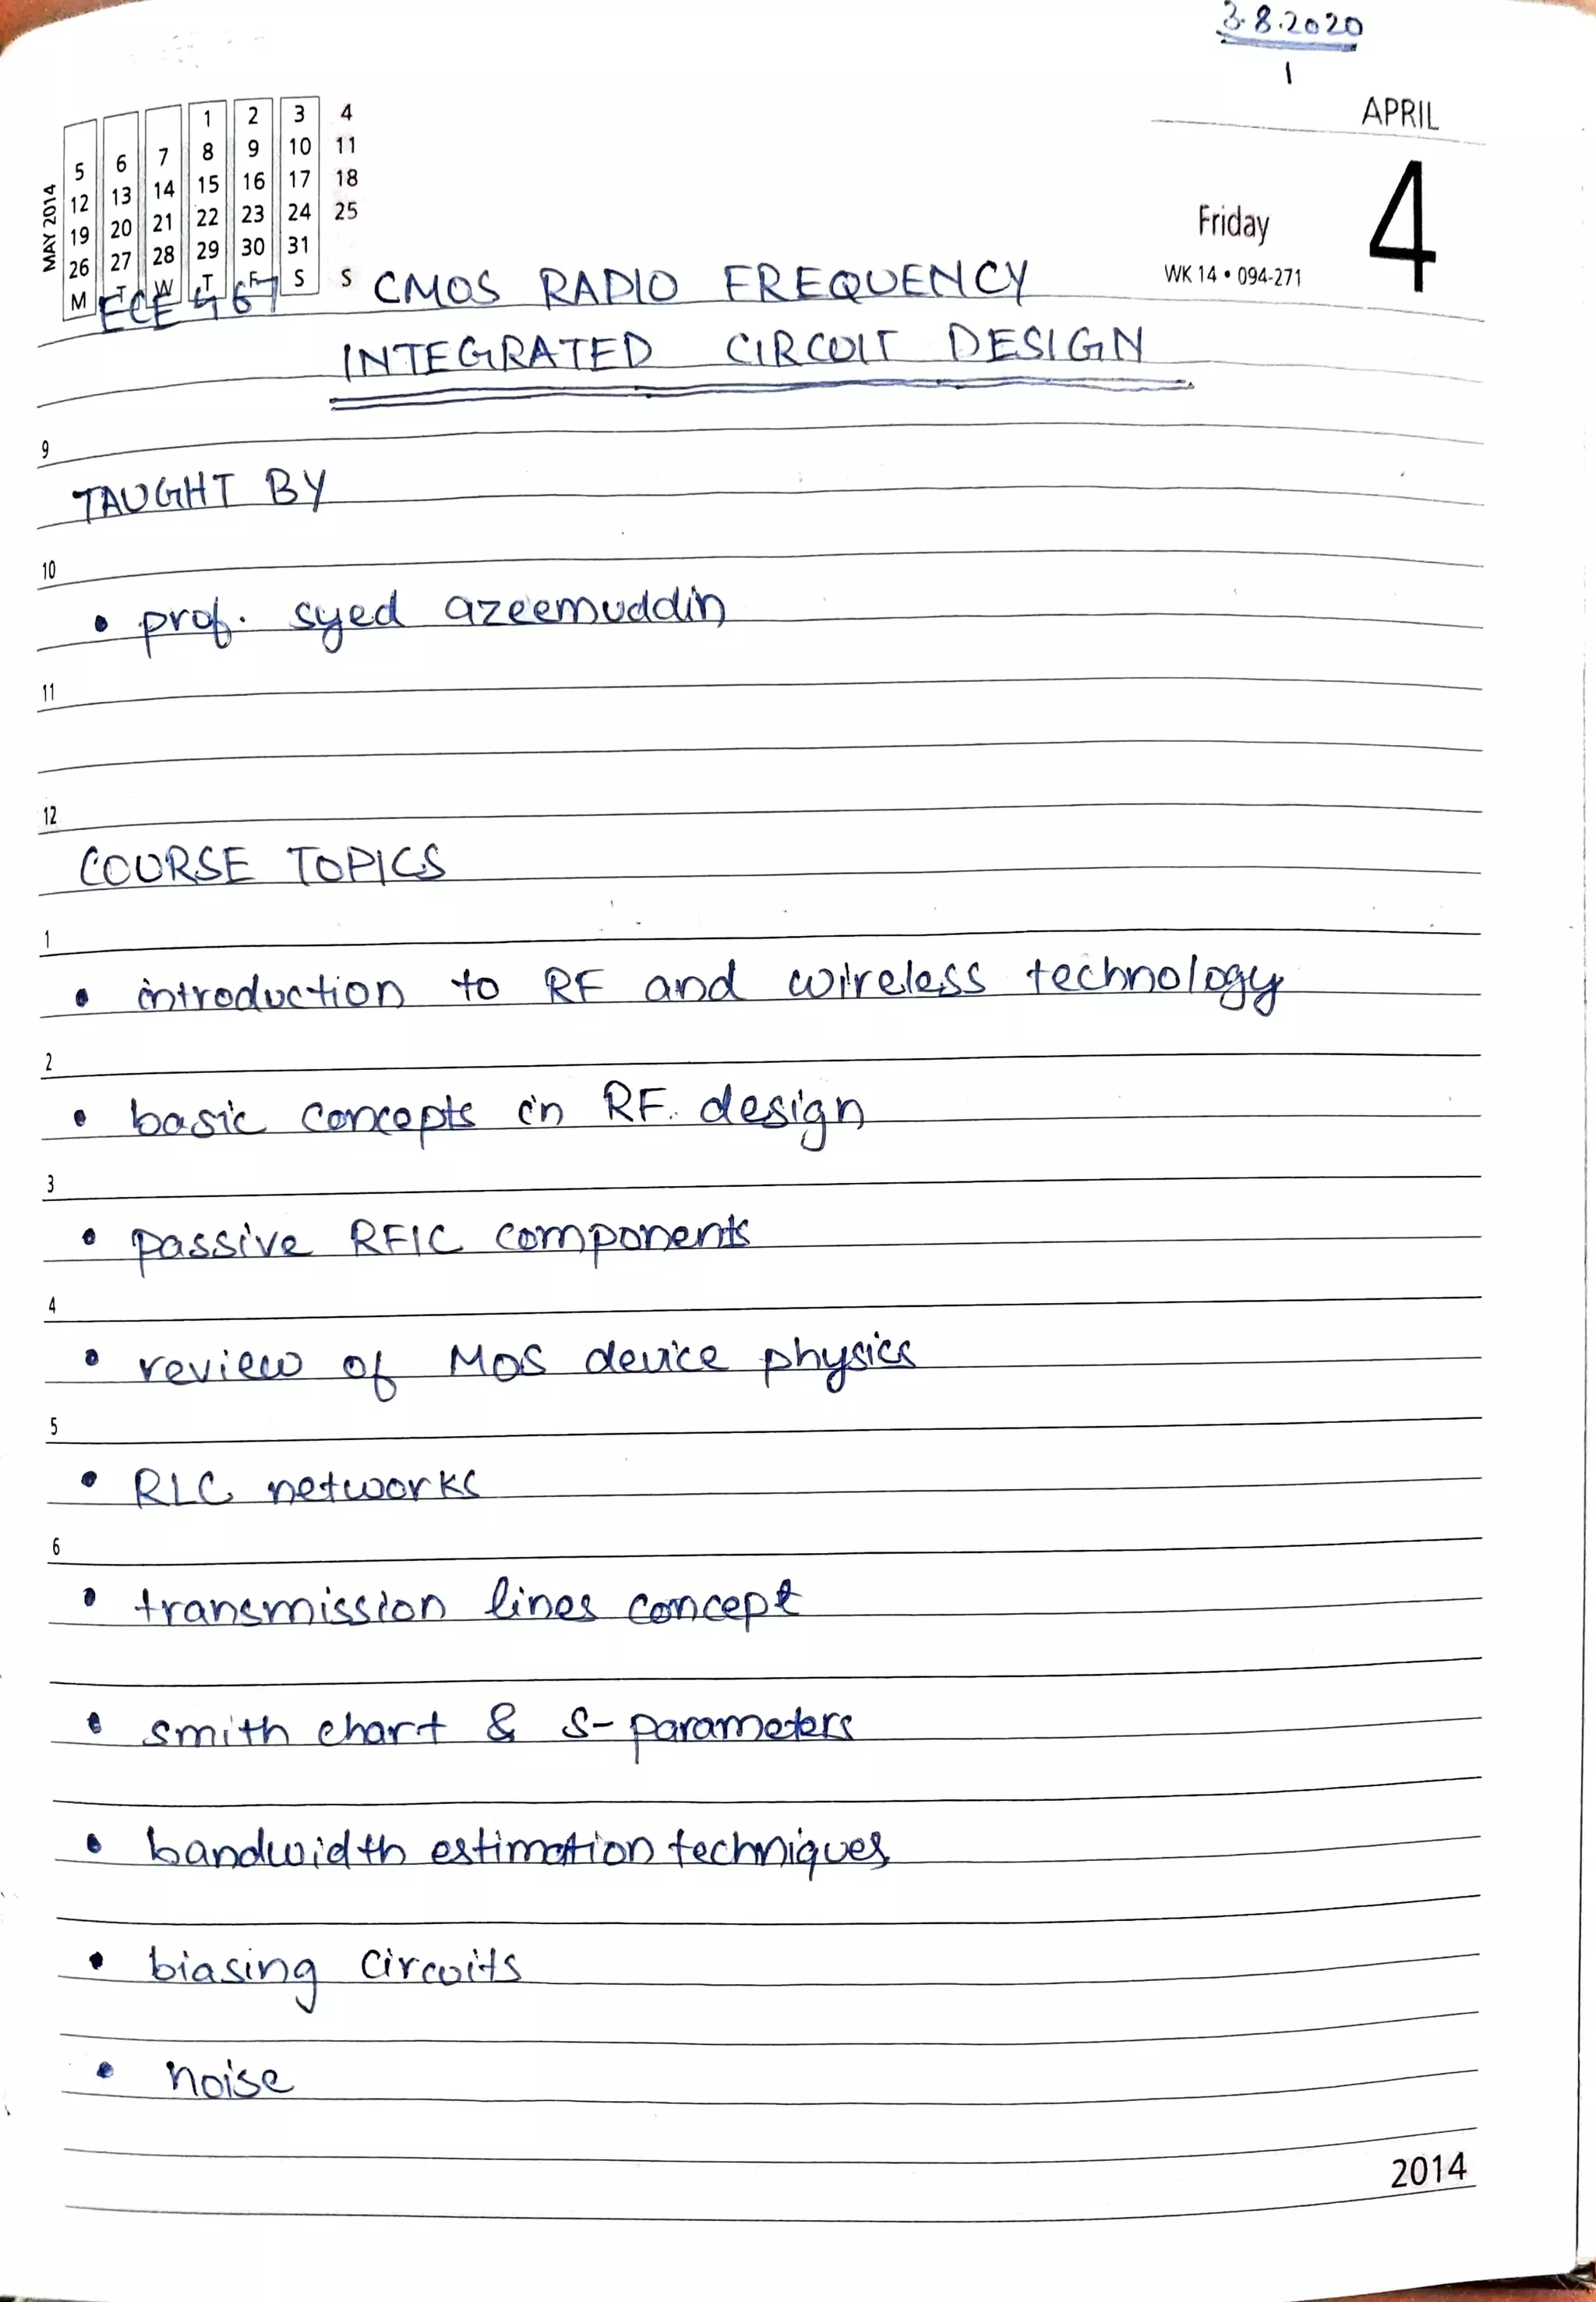 3.8.2020
1
APRIL
4
Friday
WK 14 • 094-271
MAY 2014
1 2 3 4
5 6 7 8 9 10 11
12 13 14 15 16 17 18
19 20 21 22 23 24 25
26 27 28 29 30 31
M T W T F S S
ECE 467 CMOS RADIO FREQUENCY
INTEGRATED CIRCUIT DESIGN
9
TAUGHT BY
10
• prof. syed azeemuddin
11
12
COURSE TOPICS
1
• introduction to RF and wireless technology
2
• basic concepts in RF. design
3
• passive RFIC components
4
• review of MOS device physics
5
• RLC networks
6
• transmission lines concept
• smith chart & S-parameters
• bandwidth estimation techniques
• biasing circuits
• noise
2014